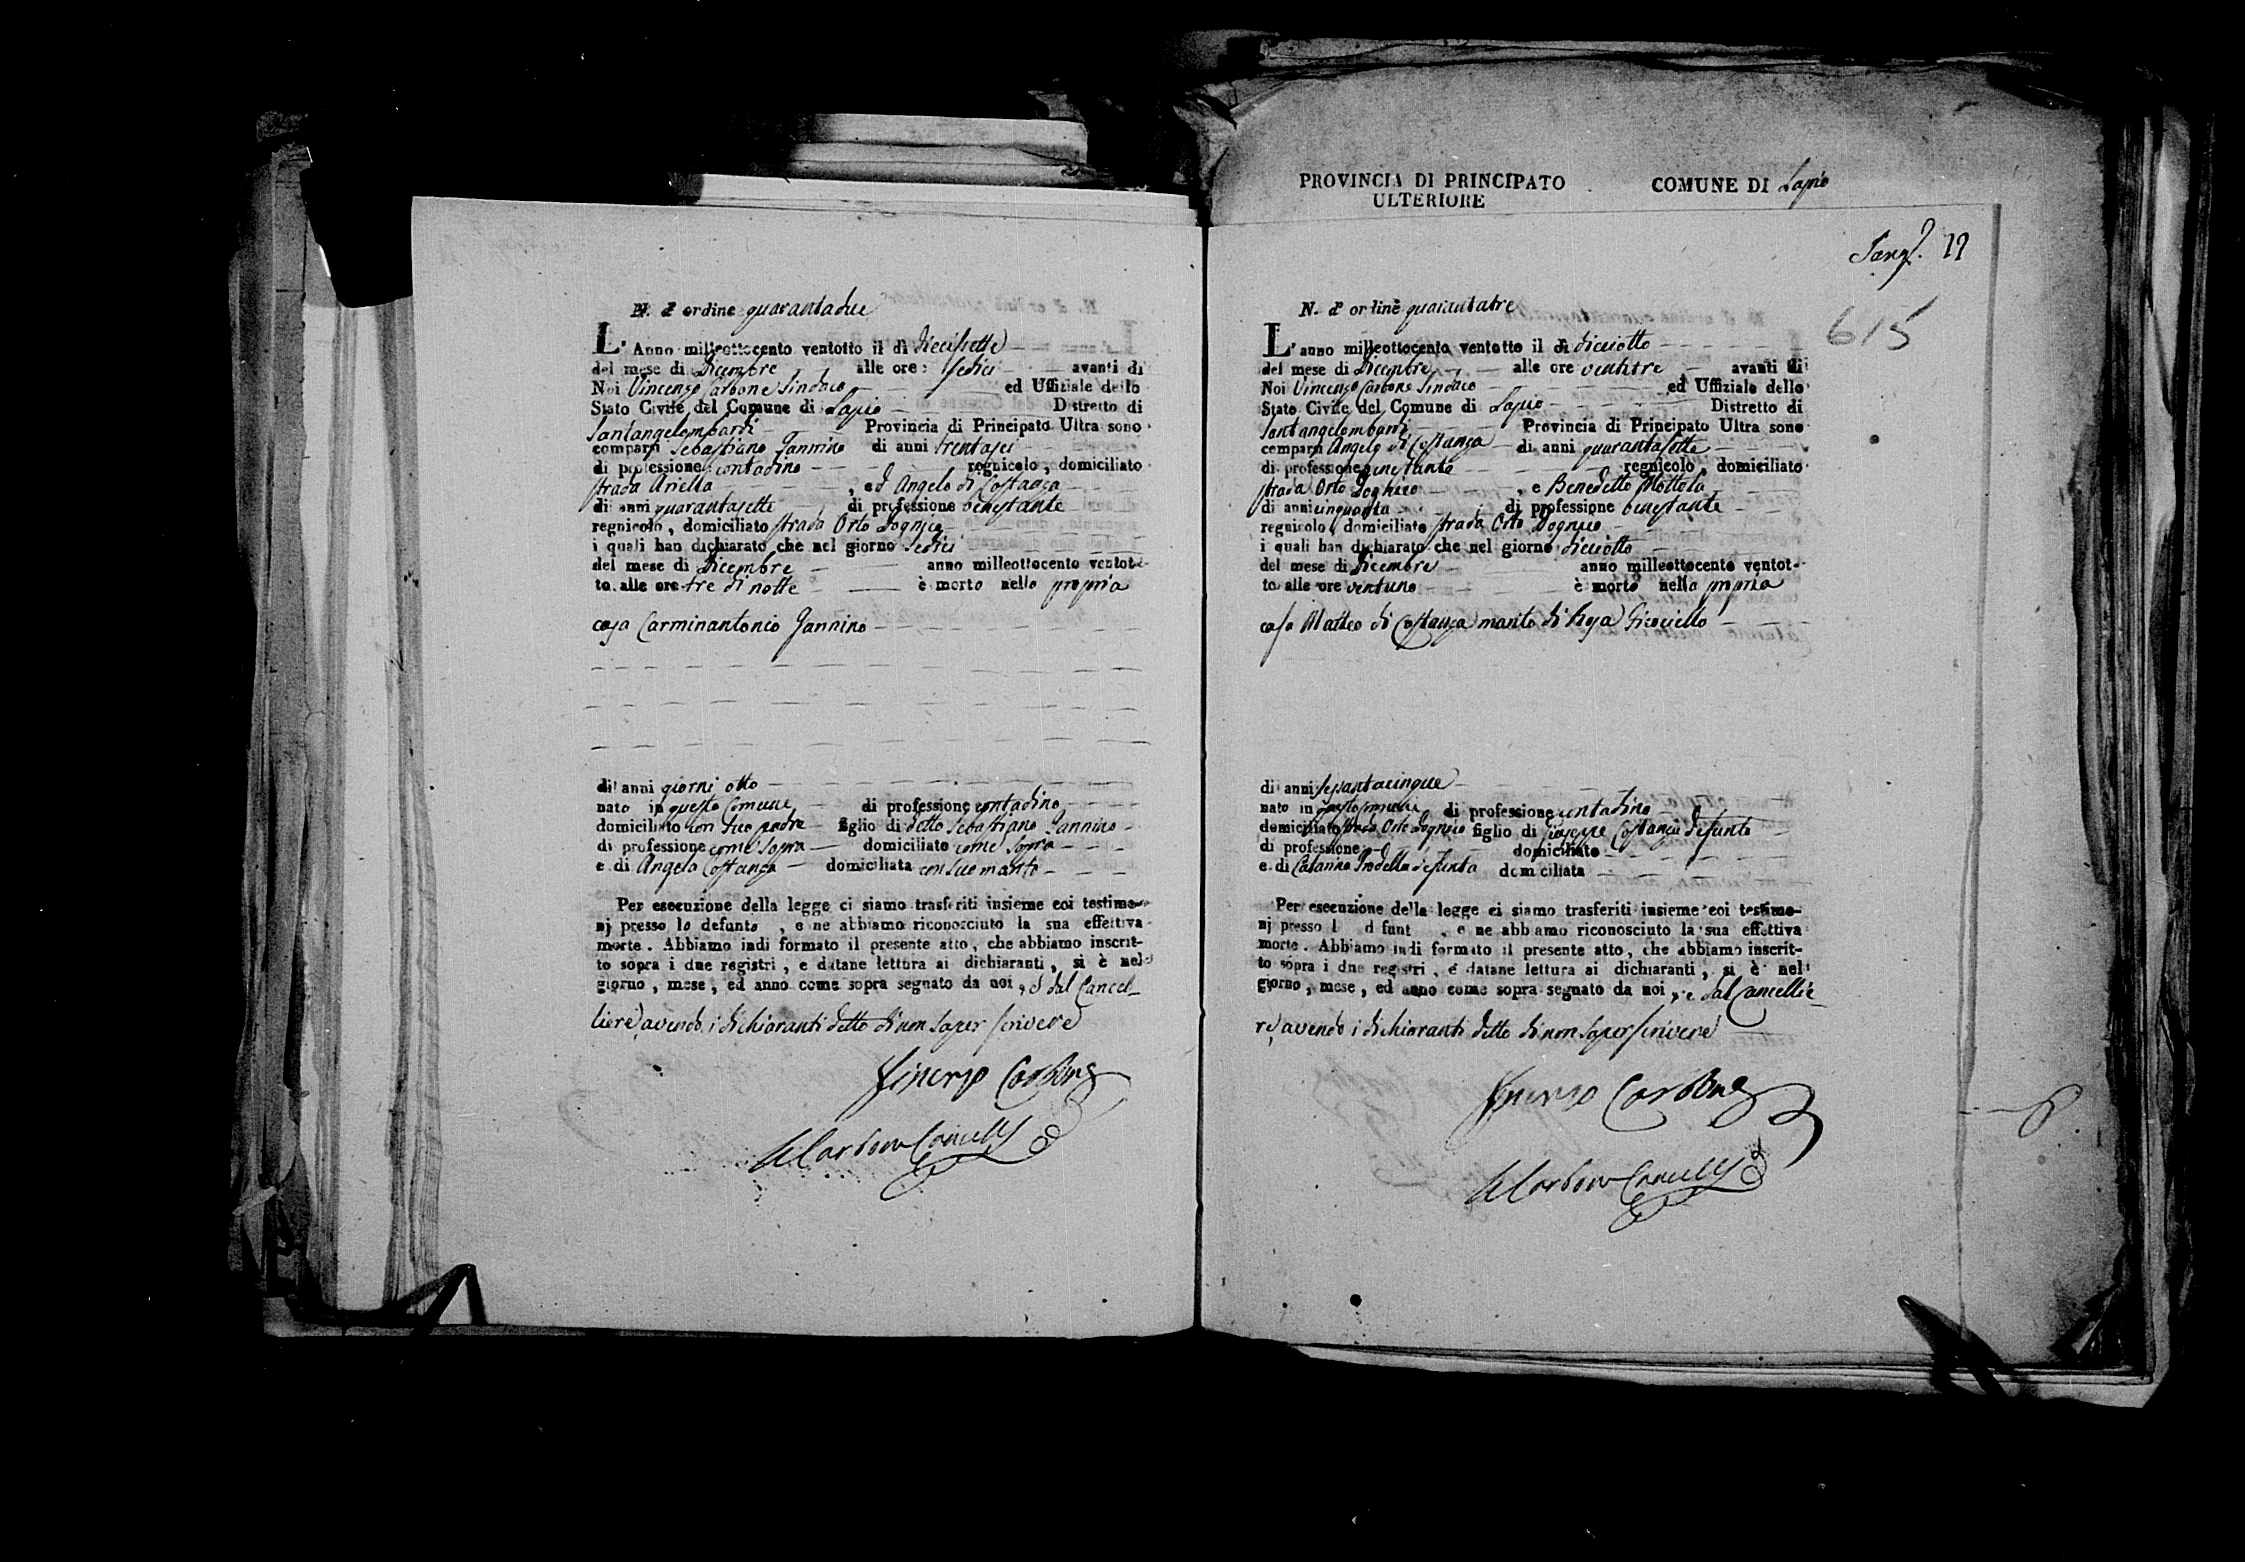 N. d'ordine quarantadue
L'Anno milleottocento ventotto il dì diecissette
del mese di Dicembre alle ore sedici avanti di
Noi Vincenzo Carbone Sindaco ed Uffiziale dello
Stato Civile del Comune di Lapio Distretto di
Santangelombardi Provincia di Principato Ultra sono
comparsi Sebastiano Jannino di anni trentasei
di professione contadino regnicolo, domiciliato
strada Ariella, ed Angelo di Costanza
di anni quarantasette di professione benestante
regnicolo, domiciliato strada Orto Dognico
i quali han dichiarato che nel giorno sedici
del mese di Dicembre anno milleottocento ventot-
to alle ore tre di notte è morto nella propria
casa Carminantonio Jannino
di anni giorni otto
nato in questo Comune di professione contadino
domiciliato con suo padre figlio di detto Sebastiano Jannino
di professione come sopra domiciliato come sopra
e di Angela Costanza domiciliata con suo marito
Per esecuzione della legge ci siamo trasferiti insieme coi testimo-
nj presso lo defunto, e ne abbiamo riconosciuto la sua effettiva
morte. Abbiamo indi formato il presente atto, che abbiamo inscrit-
to sopra i due registri, e datane lettura ai dichiaranti, si è nel
giorno, mese, ed anno come sopra segnato da noi, e dal Cancel-
liere avendo i dichiaranti detto di non saper scrivere
Vincenzo Carbone
Carbone Cancell
PROVINCIA DI PRINCIPATO
ULTERIORE
COMUNE DI Lapio
615
N. d'ordine quarantatre
L'anno milleottocento ventotto il dì dieciotto
del mese di Dicembre alle ore ventitre avanti di
Noi Vincenzo Carbone Sindaco ed Uffiziale dello
Stato Civile del Comune di Lapio Distretto di
Santangelombardi Provincia di Principato Ultra sono
comparsi Angelo di Costanza di anni quarantasette
di professione benestante regnicolo, domiciliato
strada Orto Dognico, e Benedetto Mottola
di anni cinquanta di professione benestante
regnicolo, domiciliato strada Orto Dognico
i quali han dichiarato che nel giorno dieciotto
del mese di Dicembre anno milleottocento ventot-
to alle ore ventuno è morto nella propria
casa Matteo di Costanza marito di Rosa Cicoviello
di anni sessantacinque
nato in questo comune di professione contadino
domiciliato strada Orto Dognico figlio di Giuseppe Costanza defunto
di professione domiciliato
e di Catarina defunta domiciliata
Per esecuzione della legge ci siamo trasferiti insieme coi testimo-
nj presso l defunt, e ne abbiamo riconosciuto la sua effettiva
morte. Abbiamo indi formato il presente atto, che abbiamo inscrit-
to sopra i due registri, e datane lettura ai dichiaranti, si è nel
giorno, mese, ed anno come sopra segnato da noi, e dal Cancellie-
re, avendo i dichiaranti detto di non saper scrivere
Vincenzo Carbone
Carbone Cancell